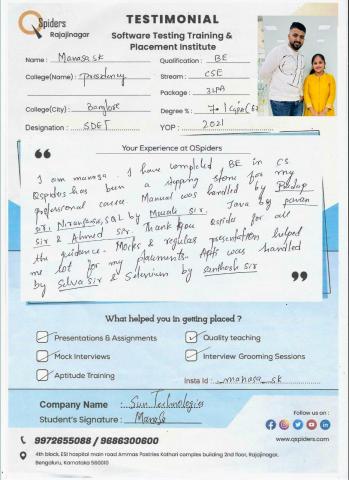 QSpiders
Rajajinagar
TESTIMONIAL
Software Testing Training &
Placement Institute
Name : Manasa SK
Qualification : BE
College(Name) : Presidency
Stream : CSE
Package : 3LPA
College(City) : Banglore
Degree % : 7.1 Cgpa
Designation : SDET
YOP : 2021
Your Experience at QSpiders
I am manasa. I have completed BE in CS.
Qspiders has been a stepping stone for my
professional career. Manual was handled by
sir, Niranjan sir, SQL by sir. Java by pavan
sir & Ahmed sir. Thank you Qspider for all
the guidence. Mocks & regular presentation helped
me lot for my placements. Apti was handled
by Selva sir & Selenium by Santhosh sir
What helped you in getting placed ?
Presentations & Assignments
Quality teaching
Mock Interviews
Interview Grooming Sessions
Aptitude Training
Insta Id : manasa_sk
Company Name : Sun Technologies
Student's Signature : Manasa
Follow us on :
9972655088 / 9686300600
www.qspiders.com
4th block, ESI hospital main road Ammas Pastries Kothari complex building 2nd floor, Rajajinagar,
Bengaluru, Karnataka 560010